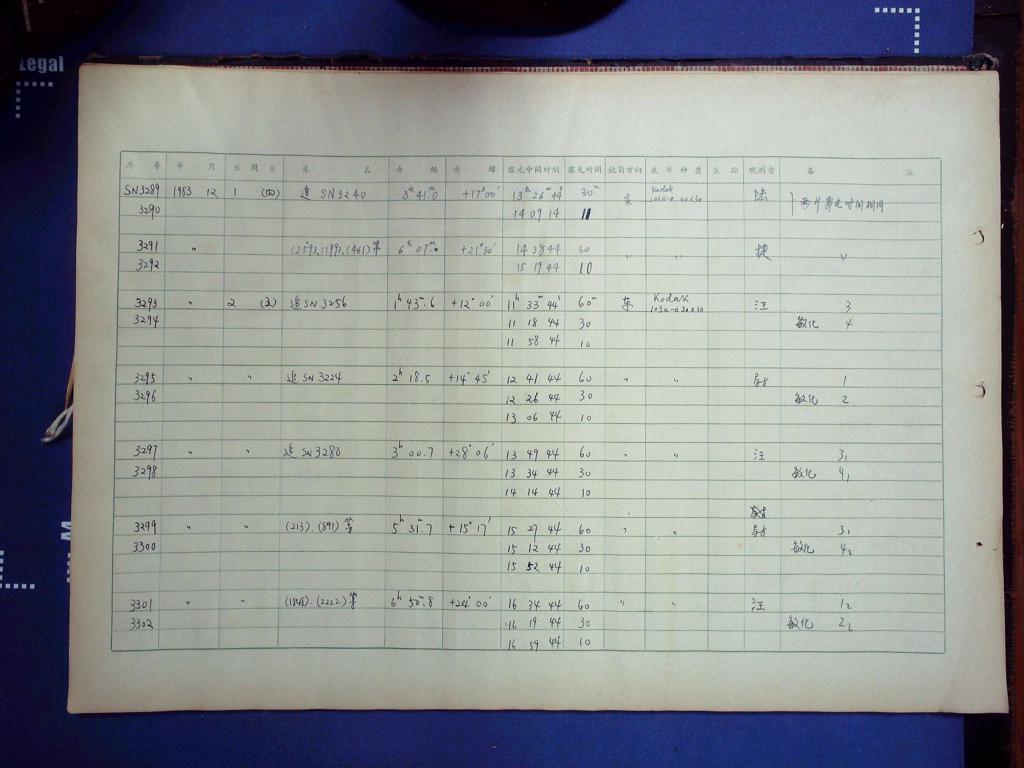 Legal
序 号 年 月 日 期 日 星 名 赤 经 赤 纬 露光中间时刻 露光时间 镜筒方向 底片种类 焦距 观测者 备 注
SN3289 1983 12 1 (四) 追 SN3240 3ʰ 41ᵐ.0 +17°00′ 13ʰ 26ᵐ 44ˢ 30ᵐ 东 Kodak 103a-O 30×30 陆 } 两片露光时间相同
3290 14 09 14 11
3291 〃 (259)、(199)、(461)等 6ʰ 07ᵐ.0 +21°30′ 14 38 44 30 〃 〃 捷 〃
3292 15 19 44 10
3293 〃 2 (五) 追SN3256 1ʰ 43ᵐ.6 +12°00′ 11ʰ 33ᵐ 44ˢ 60ᵐ 东 Kodak 103a-O 30×30 汪 3
3294 11 18 44 30 敏化 4
11 58 44 10
3295 〃 〃 追 SN3224 2ʰ 18.5 +14°45′ 12 41 44 60 〃 〃 1
3296 12 26 44 30 敏化 2
13 06 44 10
3297 〃 〃 追 SN3280 3ʰ 00.7 +28°06′ 13 49 44 60 〃 〃 汪 3₁
3298 13 34 44 30 敏化 4₁
14 14 44 10
3299 〃 〃 (213)、(891)等 5ʰ 31ᵐ.7 +15°17′ 15 27 44 60 〃 〃 3₁
3300 15 12 44 30 敏化 4₂
15 52 44 10
3301 〃 〃 (1848)、(2222)等 6ʰ 50ᵐ.8 +24°00′ 16 34 44 60 〃 〃 汪 1₂
3302 16 19 44 30 敏化 2₂
16 59 44 10